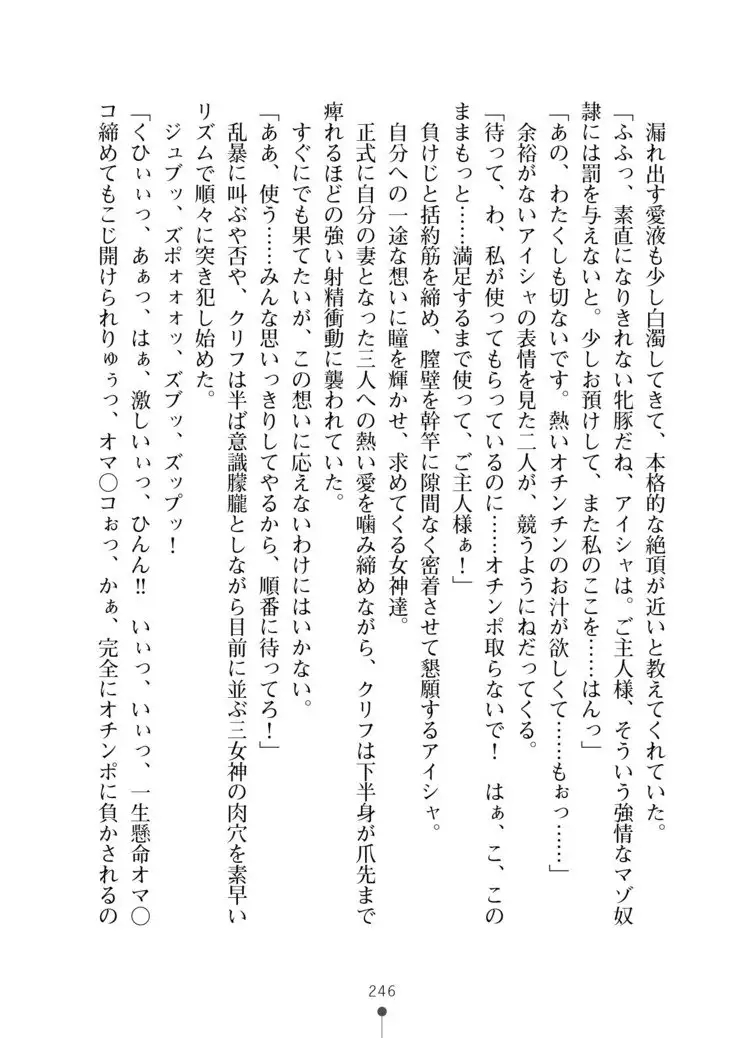 漏れ出す愛液も少し白濁してきて、本格的な絶頂が近いと教えてくれていた。
「ふふっ、素直になりきれない牝豚だね、アイシャは。ご主人様、そういう強情なマゾ奴
隷には罰を与えないと。少しお預けして、また私のここを……はんっ」
「あの、わたくしも切ないです。熱いオチンチンのお汁が欲しくて……もぉっ……」
余裕がないアイシャの表情を見た二人が、競うようにねだってくる。
「待って、わ、私が使ってもらっているのに……オチンポ取らないで！　はぁ、こ、この
ままもっと……満足するまで使って、ご主人様ぁ！」
負けじと括約筋を締め、膣壁を幹竿に隙間なく密着させて懇願するアイシャ。
自分への一途な想いに瞳を輝かせ、求めてくる女神達。
正式に自分の妻となった三人への熱い愛を噛み締めながら、クリフは下半身が爪先まで
痺れるほどの強い射精衝動に襲われていた。
すぐにでも果てたいが、この想いに応えないわけにはいかない。
「ああ、使う……みんな思いっきりしてやるから、順番に待ってろ！」
乱暴に叫ぶや否や、クリフは半ば意識朦朧としながら目前に並ぶ三女神の肉穴を素早い
リズムで順々に突き犯し始めた。
ジュブッ、ズポォォォッ、ズブッ、ズップッ！
「くひぃぃっ、あぁっ、はぁ、激しいぃっ、ひんん!!　いぃっ、いぃっ、一生懸命オマ〇
コ締めてもこじ開けられりゅぅっ、オマ〇コぉっ、かぁ、完全にオチンポに負かされるの
246